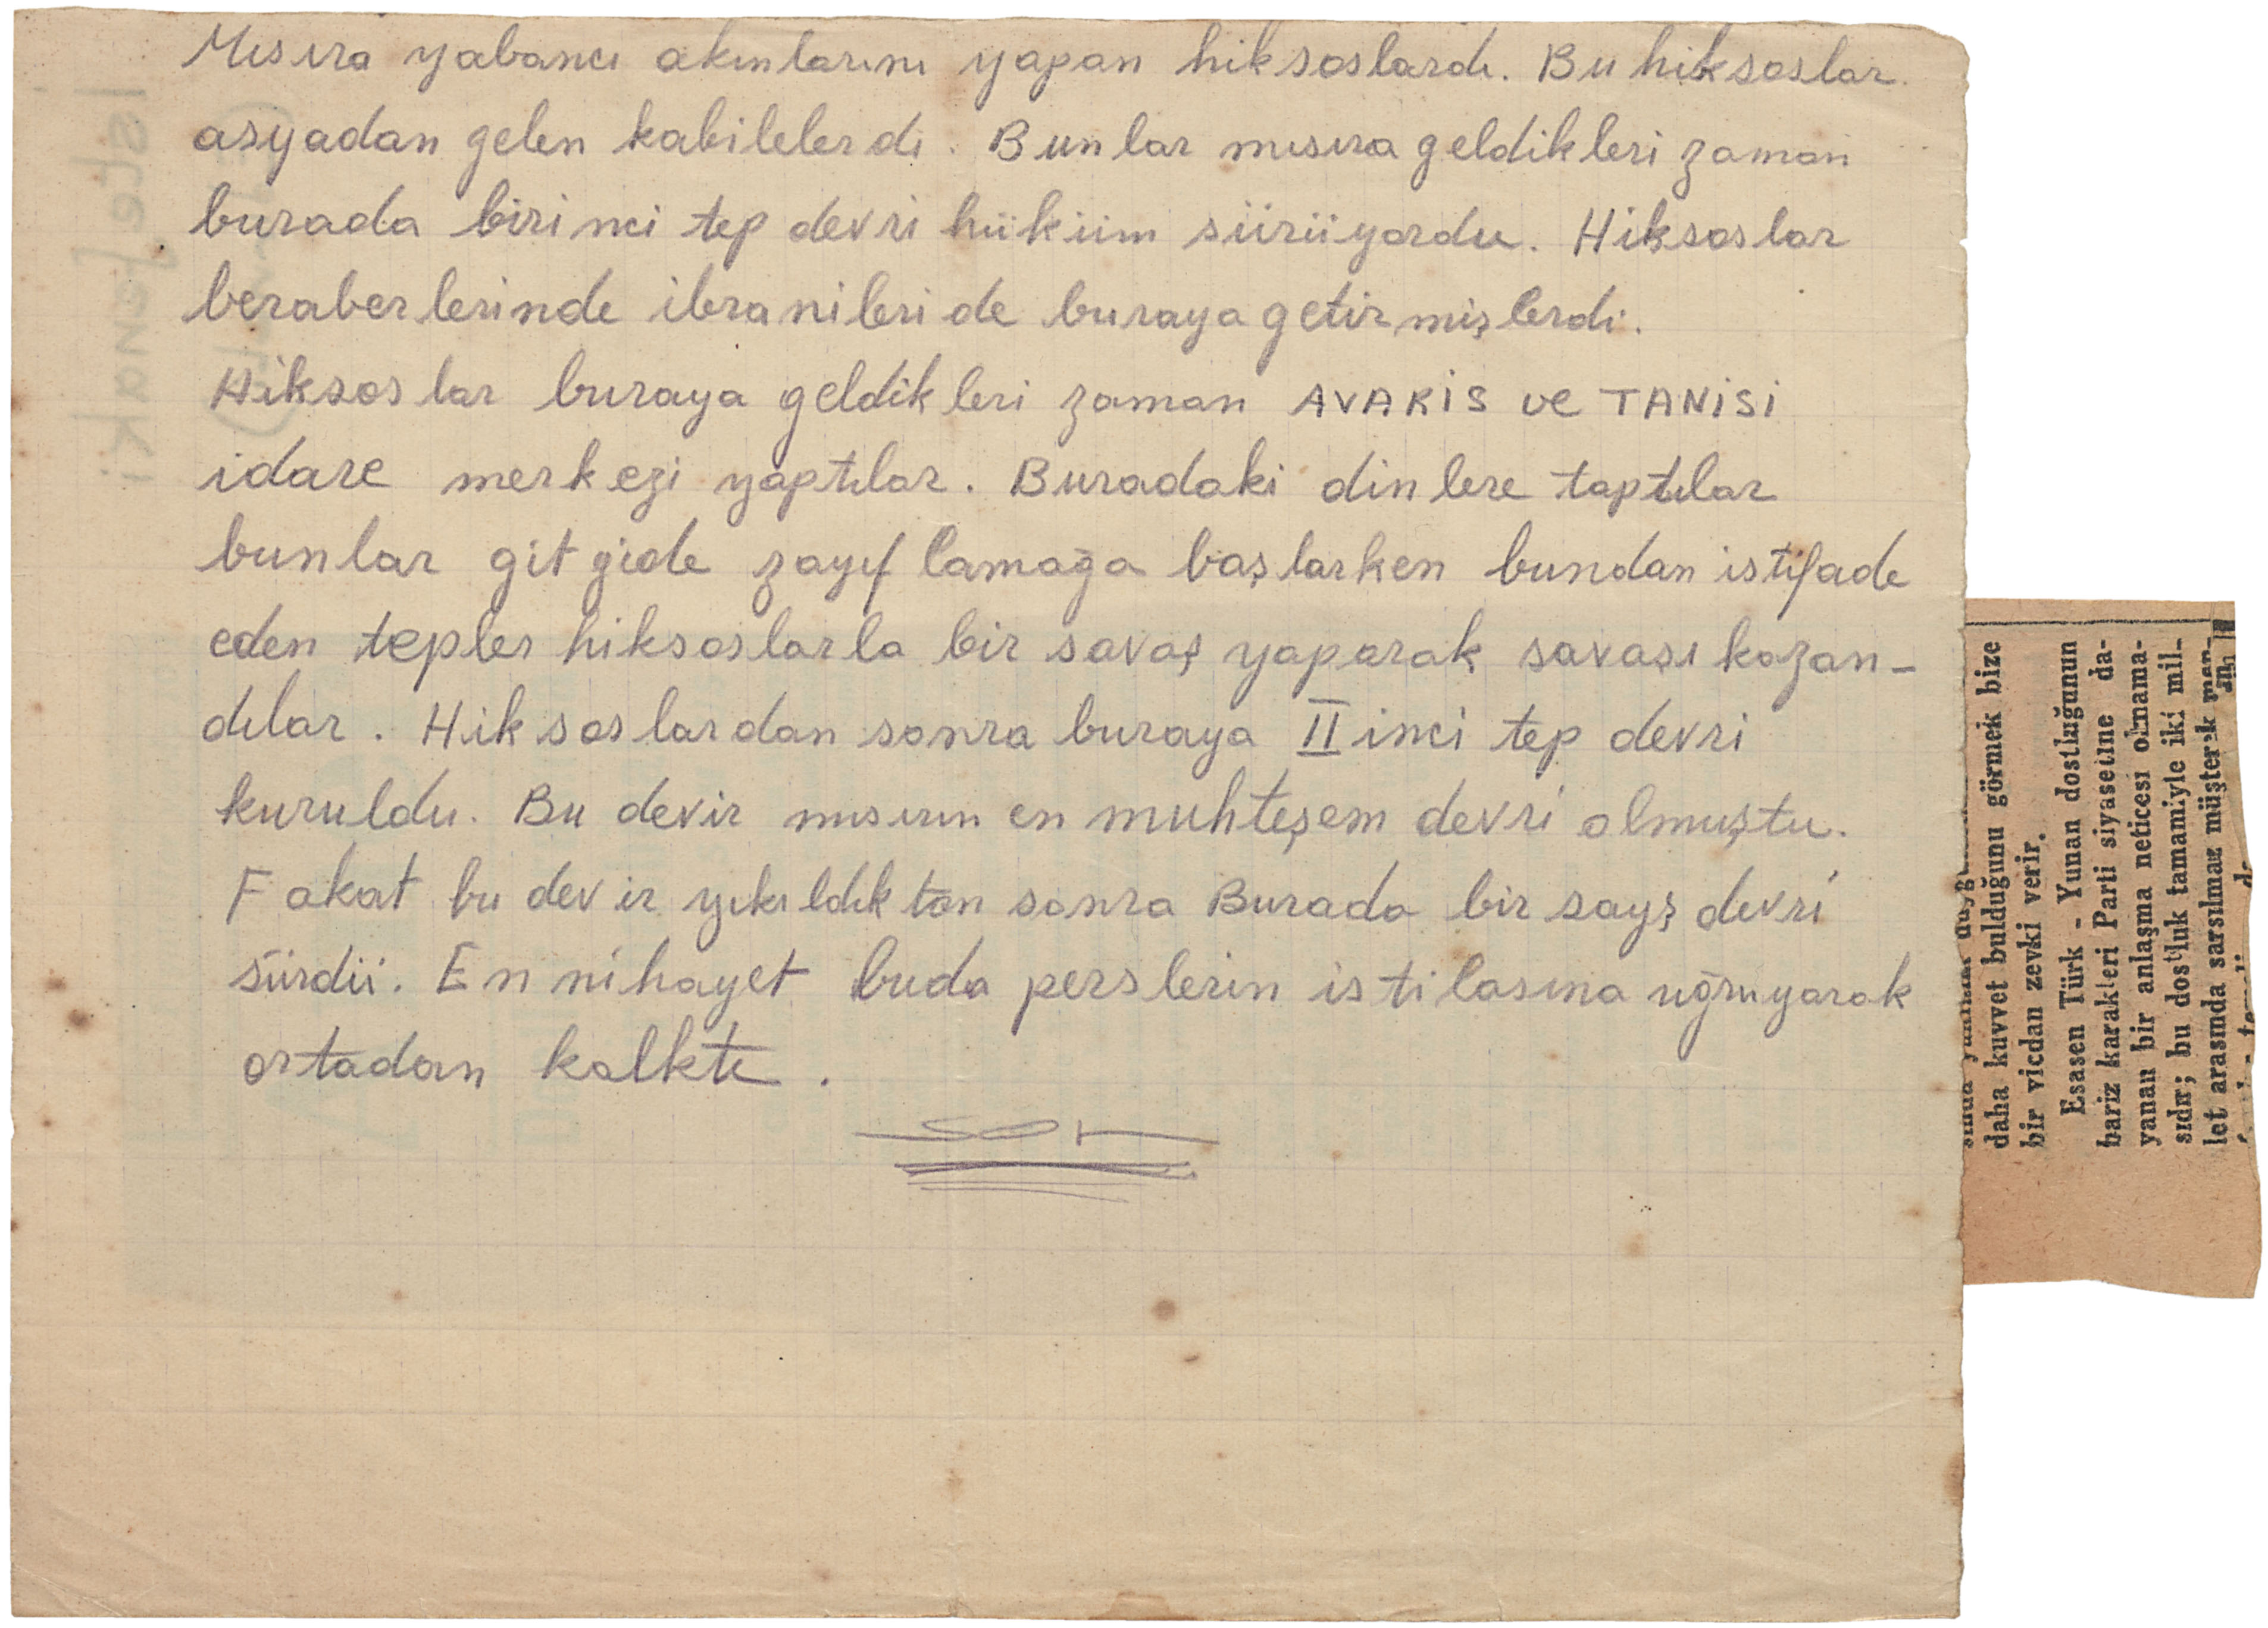 Mısıra yabancı akınlarını yapan hiksoslardı. Bu hiksoslar
asyadan gelen kabilelerdi. Bunlar mısıra geldikleri zaman
burada birinci tep devri hüküm sürüyordu. Hiksoslar
beraberlerinde ibranileride buraya getirmişlerdi.
Hiksoslar buraya geldikleri zaman AVARİS ve TANİSİ
idare merkezi yaptılar. Buradaki dinlere taptılar
bunlar git gide zayıflamağa başlarken bundan istifade
eden tepler hiksoslarla bir savaş yaparak savaşı kazan-
dılar. Hiksoslardan sonra buraya II inci tep devri
kuruldu. Bu devir mısırın en muhteşem devri olmuştu.
Fakat bu devir yıkıldıktan sonra Burada bir sayş devri
sürdü. En nihayet buda perslerin istilasına uğruyarak
ortadan kalktı.
SON
daha kuvvet bulduğunu görmek bize
bir vicdan zevki verir.
Esasen Türk - Yunan dostluğunun
bariz karakteri Parti siyasetine da-
yanan bir anlaşma neticesi olmama-
sıdır; bu dostluk tamamiyle iki mil-
let arasında sarsılmaz müşterek
İstefenaki